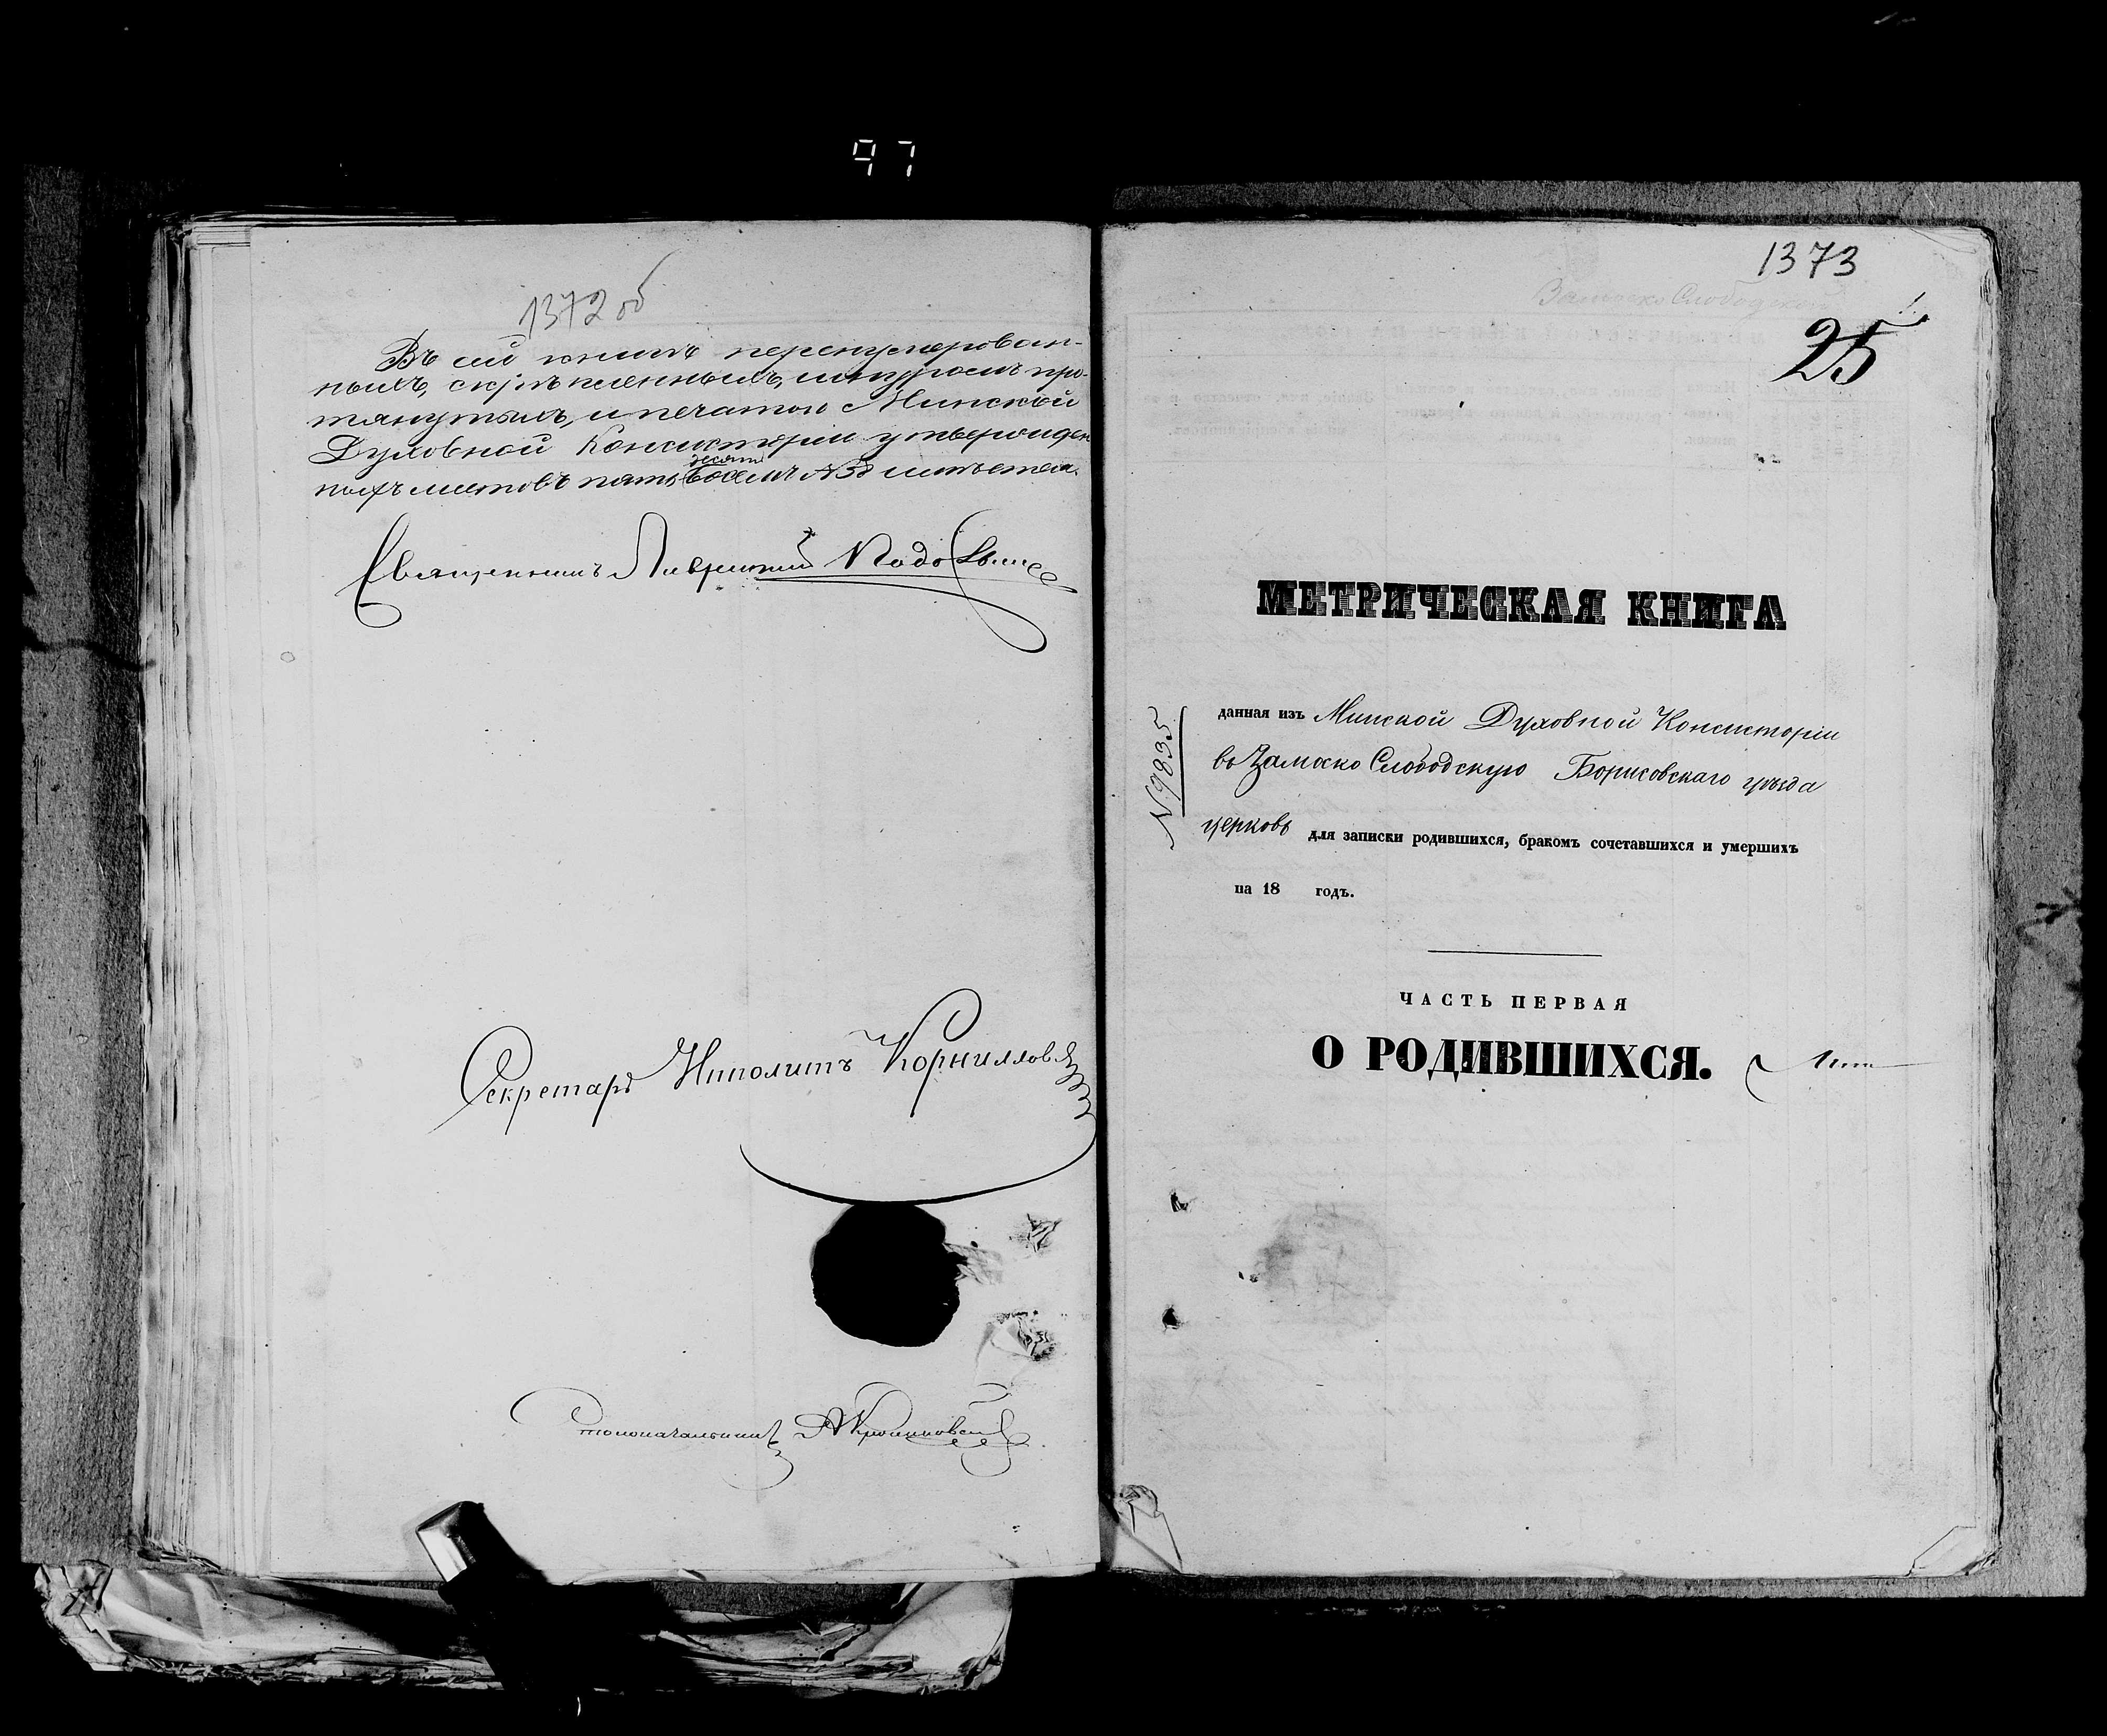 97
1372 об
Въ сей книгѣ перенумерован-
ныхъ, скрѣпленныхъ, шнуромъ про-
тянутыхъ, и печатью Минской
Духовной Консисторіи утвержден
ныхъ листовъ пять десятъ восемь
Священникъ
Секретарь Ипполитъ Корниллов
Столоначальникъ
1373
Замоско Слободской
25
МЕТРИЧЕСКАЯ КНИГА
№ 9835
данная изъ Минской Духовной Консисторіи
въ Замоско Слободскую Борисовскаго уѣзда
церковь для записки родившихся, бракомъ сочетавшихся и умершихъ
на 18 годъ.
ЧАСТЬ ПЕРВАЯ
О РОДИВШИХСЯ.